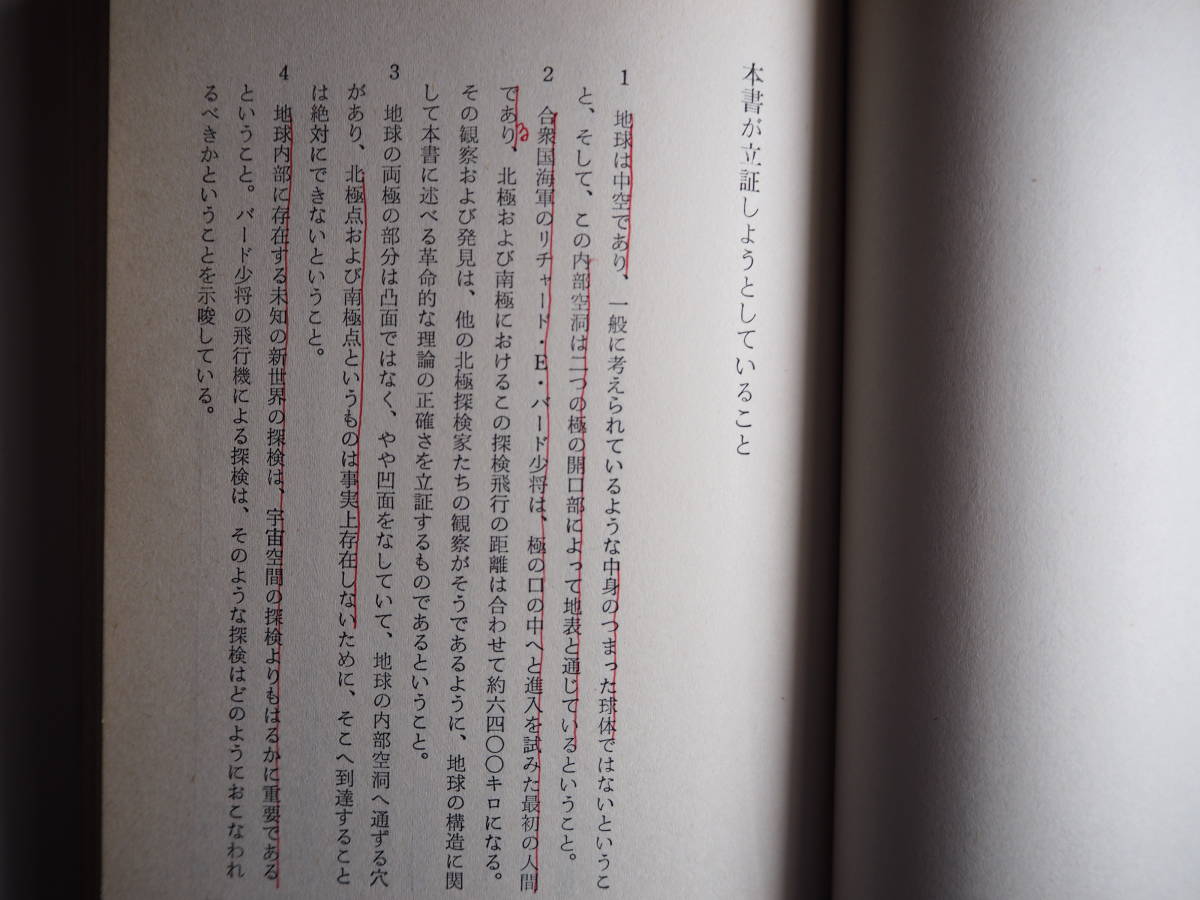 本書が立証しようとしていること
1 地球は中空であり、一般に考えられているような中身のつまった球体ではないというこ
と、そして、この内部空洞は二つの極の開口部によって地表と通じているということ。
2 合衆国海軍のリチャード・E・バード少将は、極の口の中へと進入を試みた最初の人間
であり、北極および南極におけるこの探検飛行の距離は合わせて約六四〇〇キロになる。
る
その観察および発見は、他の北極探検家たちの観察がそうであるように、地球の構造に関
して本書に述べる革命的な理論の正確さを立証するものであるということ。
3 地球の両極の部分は凸面ではなく、やや凹面をなしていて、地球の内部空洞へ通ずる穴
があり、北極点および南極点というものは事実上存在しないために、そこへ到達すること
は絶対にできないということ。
4 地球内部に存在する未知の新世界の探検は、宇宙空間の探検よりもはるかに重要である
ということ。バード少将の飛行機による探検は、そのような探検はどのようにおこなわれ
るべきかということを示唆している。